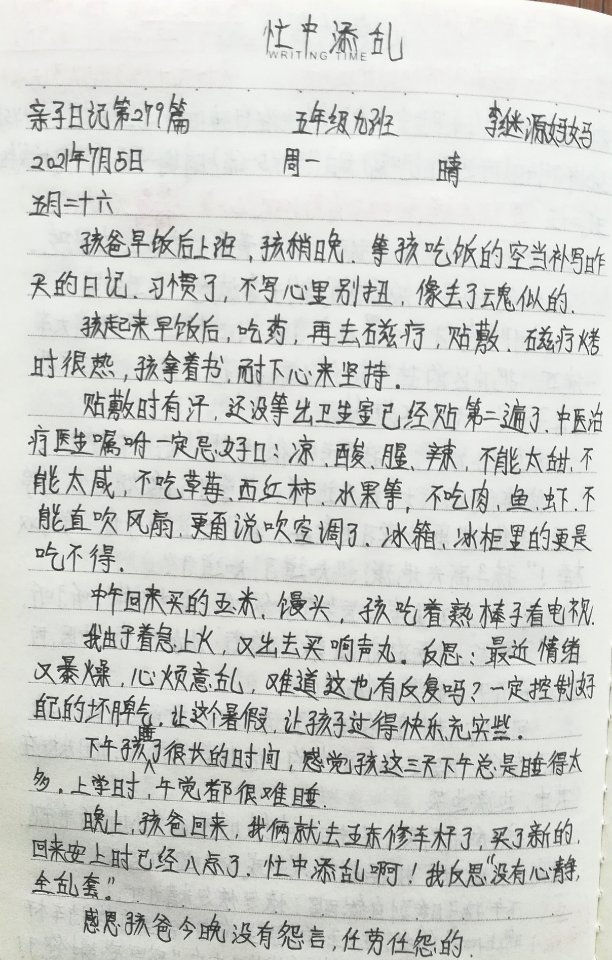 忙中添乱
WRITING TIME
亲子日记第279篇 五年级九班 李继源妈妈
2021年7月5日 周一 晴
五月二十六
孩爸早饭后上班，孩稍晚．等孩吃饭的空当补写昨
天的日记．习惯了，不写心里别扭，像丢了魂似的．
孩起来早饭后，吃药，再去磁疗，贴敷．磁疗烤
时很热，孩拿着书，耐下心来坚持．
贴敷时有汗，还没等出卫生室已经贴第二遍了．中医治
疗医生嘱咐一定忌好口：凉、酸、腥、辣，不能太甜，不
能太咸，不吃草莓、西红柿．水果等，不吃肉、鱼、虾、不
能直吹风扇，更甭说吹空调了．冰箱、冰柜里的更是
吃不得．
中午回来买的玉米、馒头，孩吃着熟棒子看电视．
我由于着急上火，又出去买响声丸。反思：最近情绪
又暴燥，心烦意乱，难道这也有反复吗？一定控制好
自己的坏脾气，让这个暑假，让孩子过得快乐充实些．
下午孩睡了很长的时间，感觉孩这三天下午总是睡得太
多。上学时，午觉都很难睡．
晚上，孩爸回来，我俩就去五东修车籽了，买了新的，
回来安上时已经八点了．忙中添乱啊！我反思"没有心静，
全乱套。"
感恩孩爸今晚没有怨言，任劳任怨的．